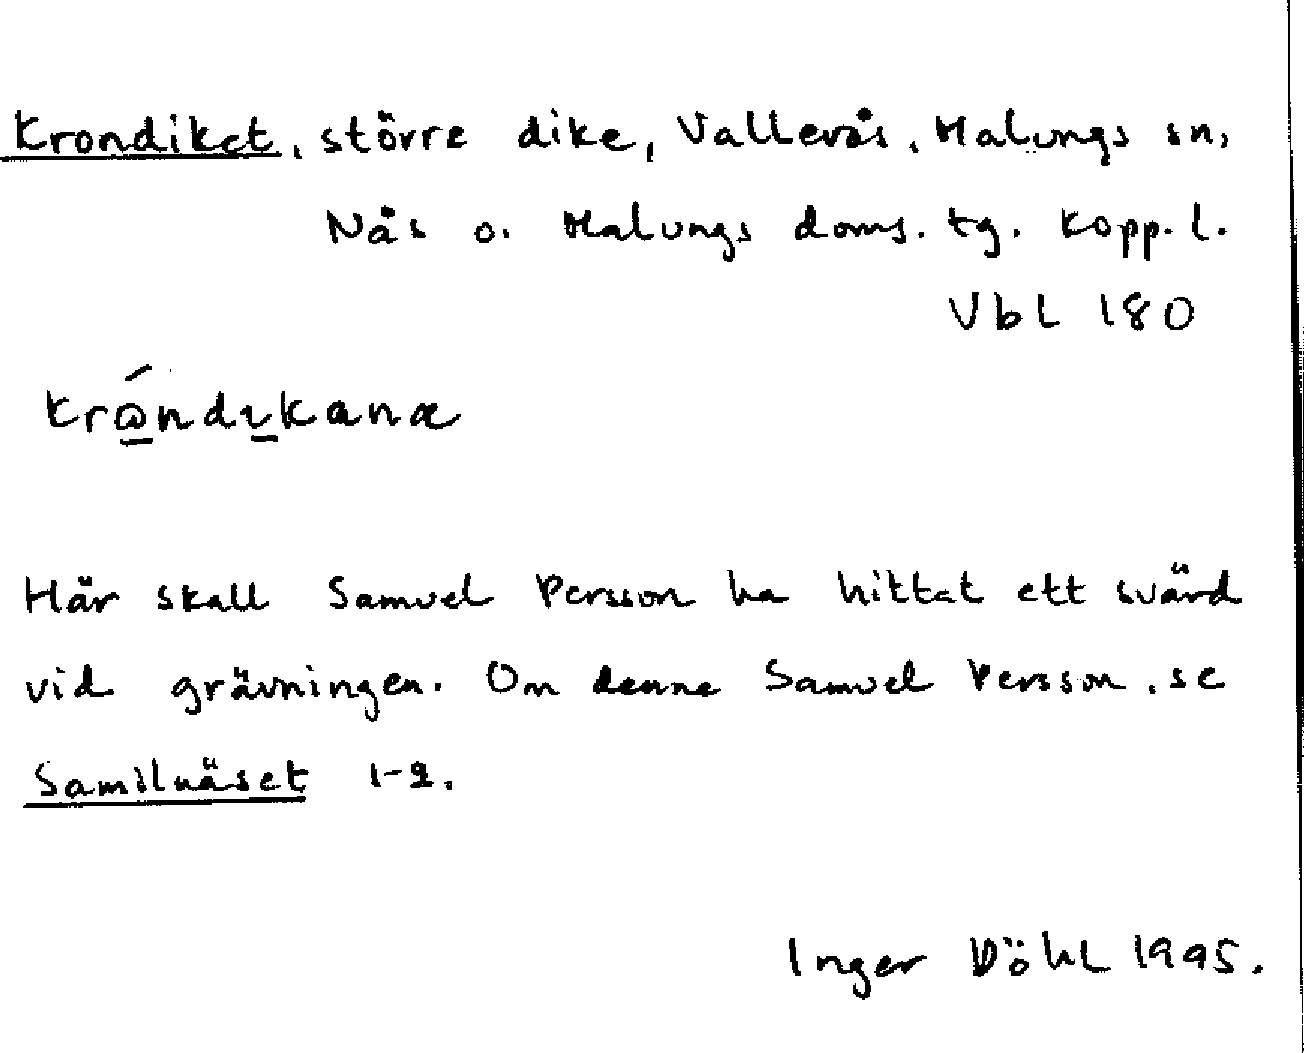 Krondiket, större dike, Vallerås, Malungs sn,
Nås o. Malungs doms. tg. Kopp. l.
Vbl 180
Här skall Samuel Persson ha hittat ett svärd
vid grävningen. Om denne Samuel Persson, se
Samilnäset 1-2.
Inger Döhl 1995.